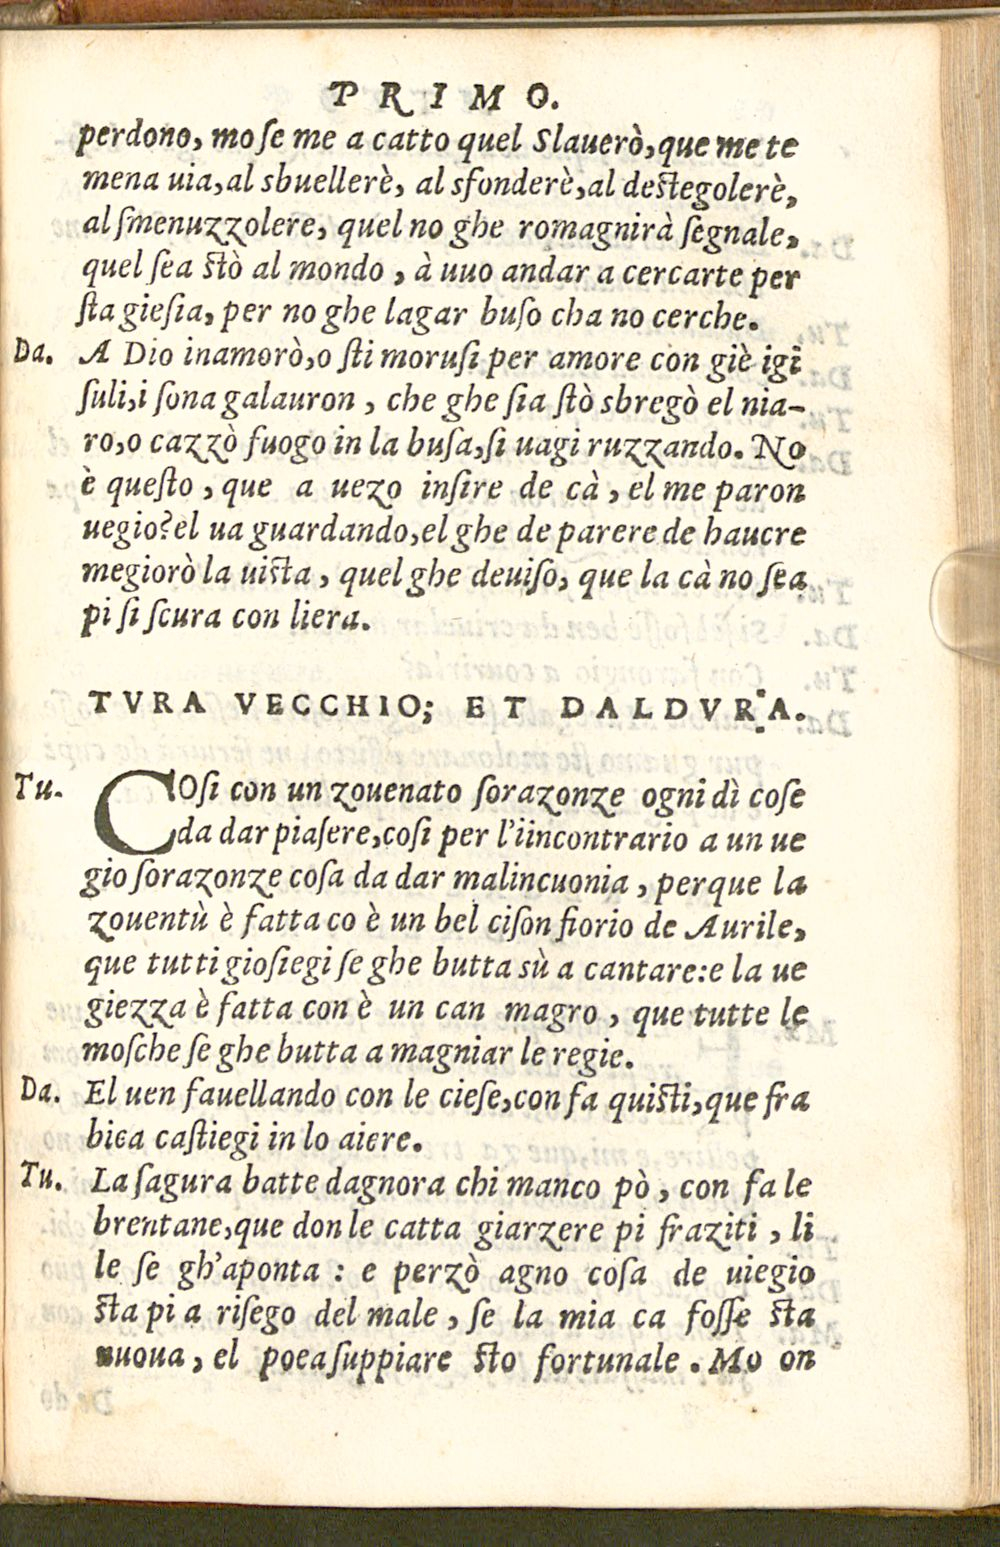 PRIMO.
perdono, mo se me a catto quel Slauerò, que me te
mena uia, al sbuellerè, al sfonderè, al destegolerè,
al smenuzzolere, quel no ghe romagnirà segnale,
quel sea stò al mondo, à uuo andar a cercarte per
sta giesia, per no ghe lagar buso cha no cerche.
Da. A Dio inamorò, o sti morusi per amore con giè igi
suli, i sona galauron, che ghe sia stò sbregò el nia-
ro, o cazzò fuogo in la busa, si uagi ruzzando. No
è questo, que a uezo insire de cà, el me paron
uegio? el ua guardando, el ghe de parere de hauere
megiorò la uista, quel ghe deuiso, que la cà no sea
pi si scura con liera.
TVRA VECCHIO; ET DALDVRA.
Tu. COsi con un zouenato sorazonze ogni dì cose
da dar piasere, cosi per l'iincontrario a un ue
gio sorazonze cosa da dar malincuonia, perque la
zouentù è fatta co è un bel cison fiorio de Aurile,
que tutti giosiegi se ghe butta sù a cantare: e la ue
giezza è fatta con è un can magro, que tutte le
mosche se ghe butta a magniar le regie.
Da. El uen fauellando con le ciese, con fa quisti, que fra
bica castiegi in lo aiere.
Tu. La sagura batte dagnora chi manco pò, con fa le
brentane, que don le catta giarzere pi fraziti, li
le se gh'aponta: e perzò agno cosa de uiegio
sta pi a risego del male, se la mia ca fosse sta
nuoua, el poea suppiare sto fortunale. Mo on